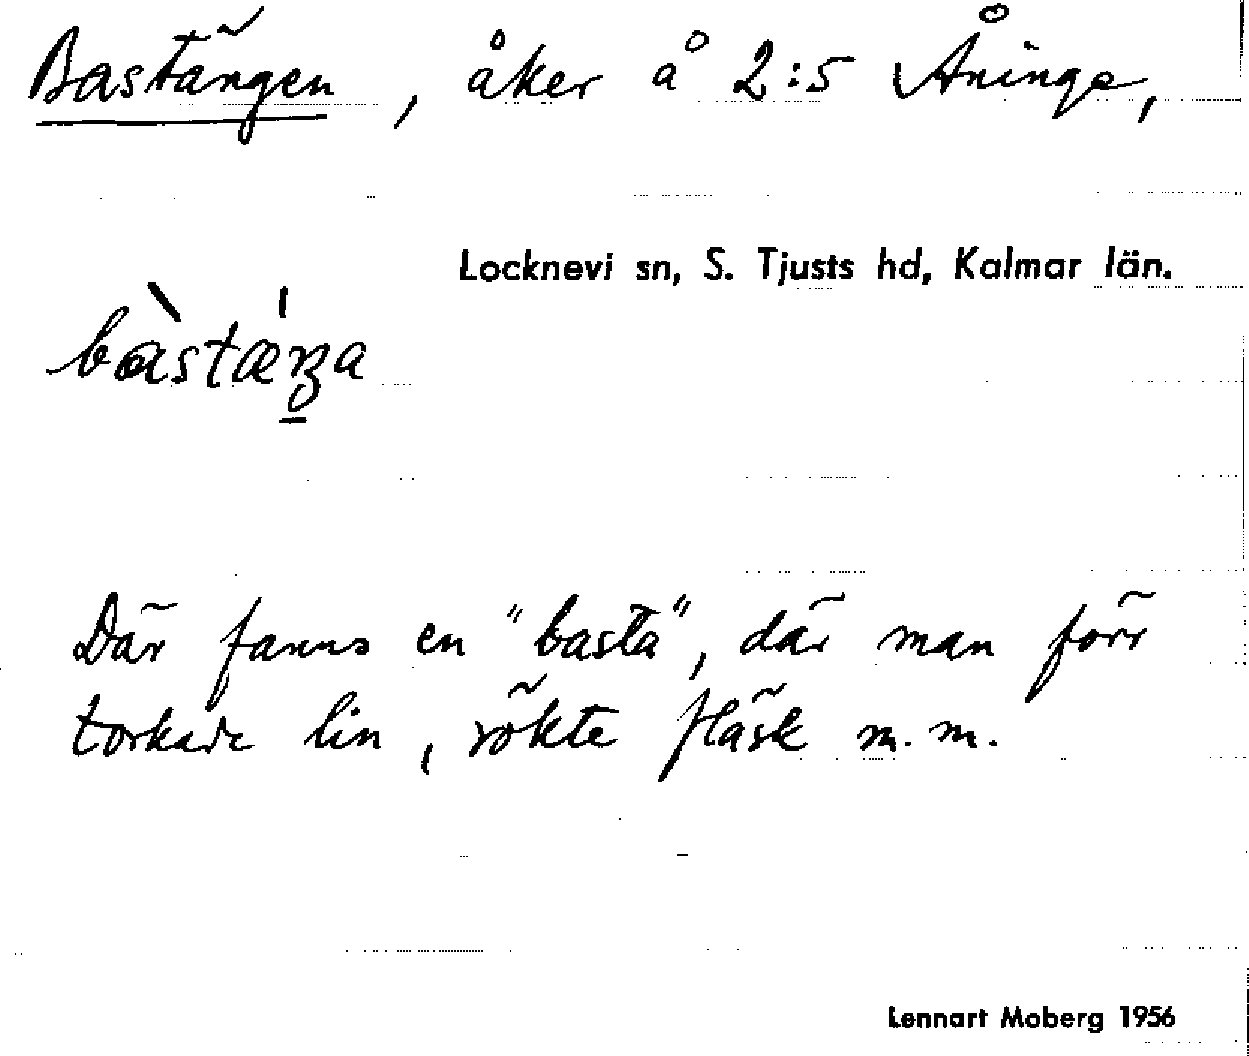 Bastängen, åker å 2:5 Åninge,
Locknevi sn, S. Tjusts hd, Kalmar län.
bàstæ̀ŋa
Där fanns en "basta", där man förr
torkade lin, rökte fläsk m.m.
Lennart Moberg 1956